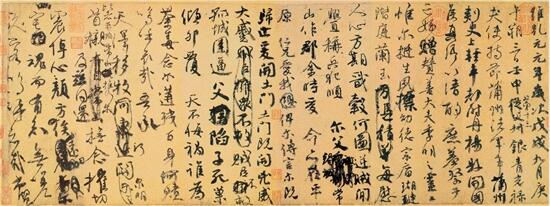 維乾元元年歲次戊戌九月庚
午朔三日壬申第十三叔銀青光祿
夫使持節蒲州諸軍事蒲州
刺史上輕車都尉丹楊縣開國
侯真卿以清酌庶羞祭于
亡姪贈贊善大夫季明之靈曰
惟爾挺生夙標幼德宗廟瑚璉
階庭蘭玉每慰
人心方期戩穀何圖逆賊閒
釁稱兵犯順爾父竭誠
常山作郡余時受命亦在平
原仁兄愛我俾爾傳言爾既
歸止爰開土門土門既開凶威
大蹙賊臣不救
孤城圍逼父陷子死巢
傾卵覆天不悔禍誰為
荼毒念爾遘殘百身何贖
嗚呼哀哉吾承
天澤移牧河關泉明
首櫬及茲同還撫念摧切
震悼心顏方俟遠日
魂而有知無嗟
久客嗚呼哀哉尚饗